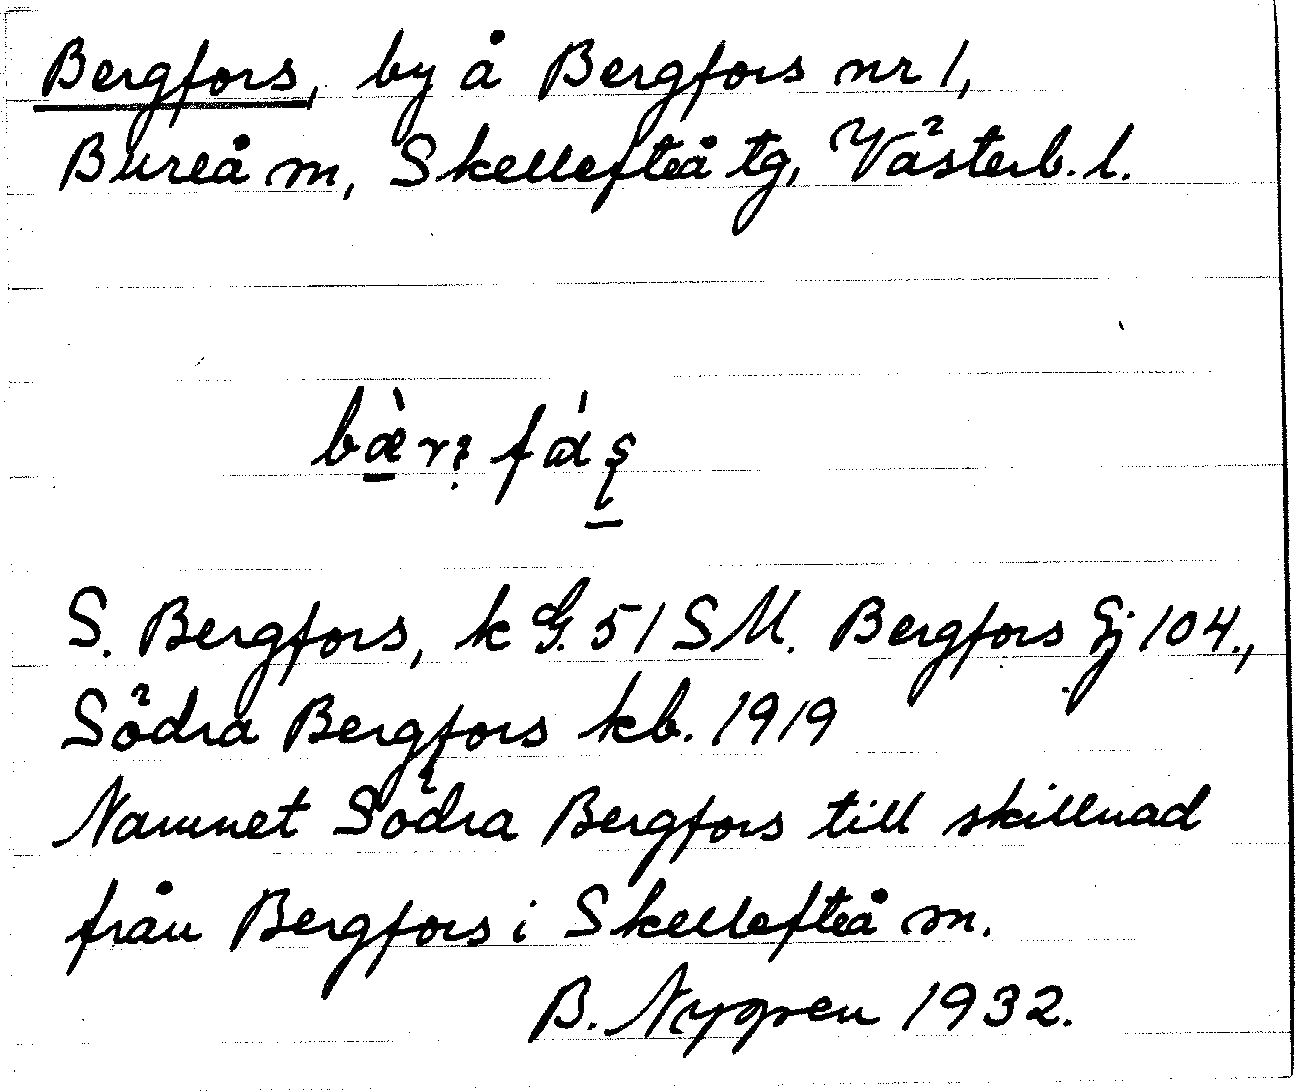 Bergfors, by å Bergfors nr 1,
Bureå m, Skellefteå tg, Västerb. l.
S. Bergfors, k G. 51 SM. Bergfors Ej 104.,
Södra Bergfors kb. 1919
Namnet Södra Bergfors till skillnad
från Bergfors i Skellefteå m.
B. Nygren 1932.